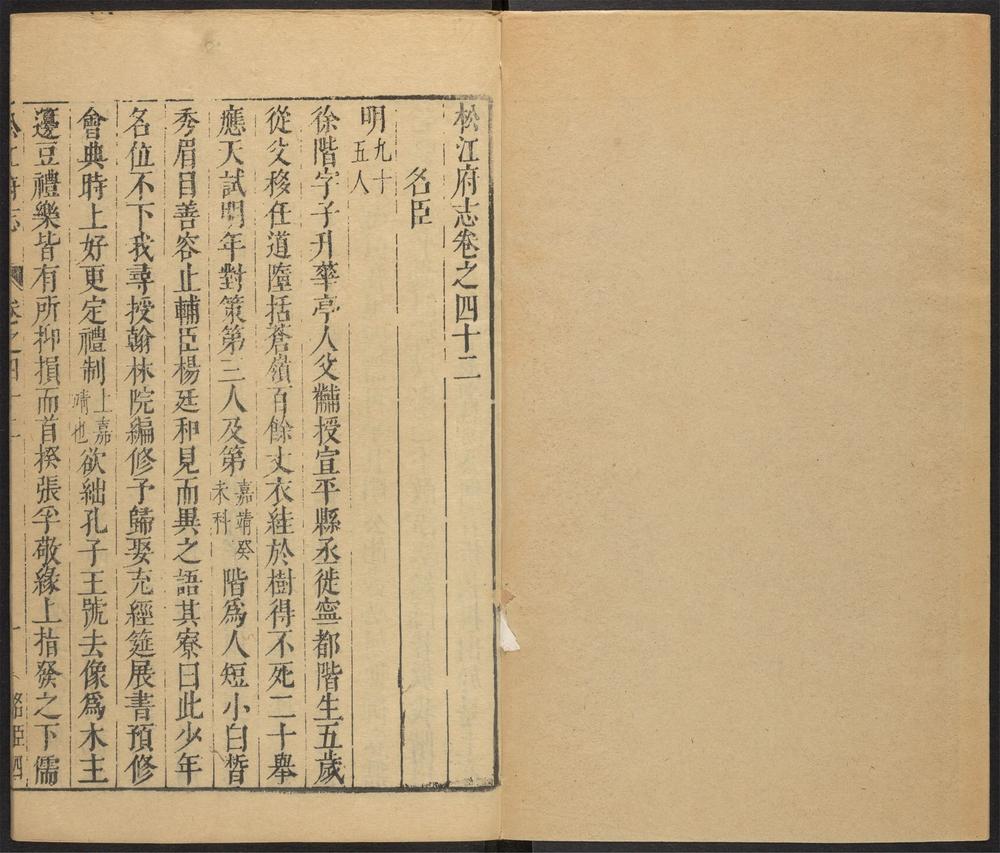 松江府志卷之四十二
名臣
明九十五人
徐階字子升華亭人父黼授宣平縣丞徙寧都階生五歲
從父移任道墮括蒼嶺百餘丈衣絓於樹得不死二十舉
應天試明年對策第三人及第嘉靖癸未科階爲人短小白晳
秀眉目善容止輔臣楊廷和見而異之語其寮曰此少年
名位不下我尋授翰林院編修予歸娶充經筵展書預修
會典時上好更定禮制上嘉靖也欲絀孔子王號去像爲木主
籩豆禮樂皆有所抑損而首揆張孚敬緣上指發之下儒
松江府志 卷之四十二 一 名臣四